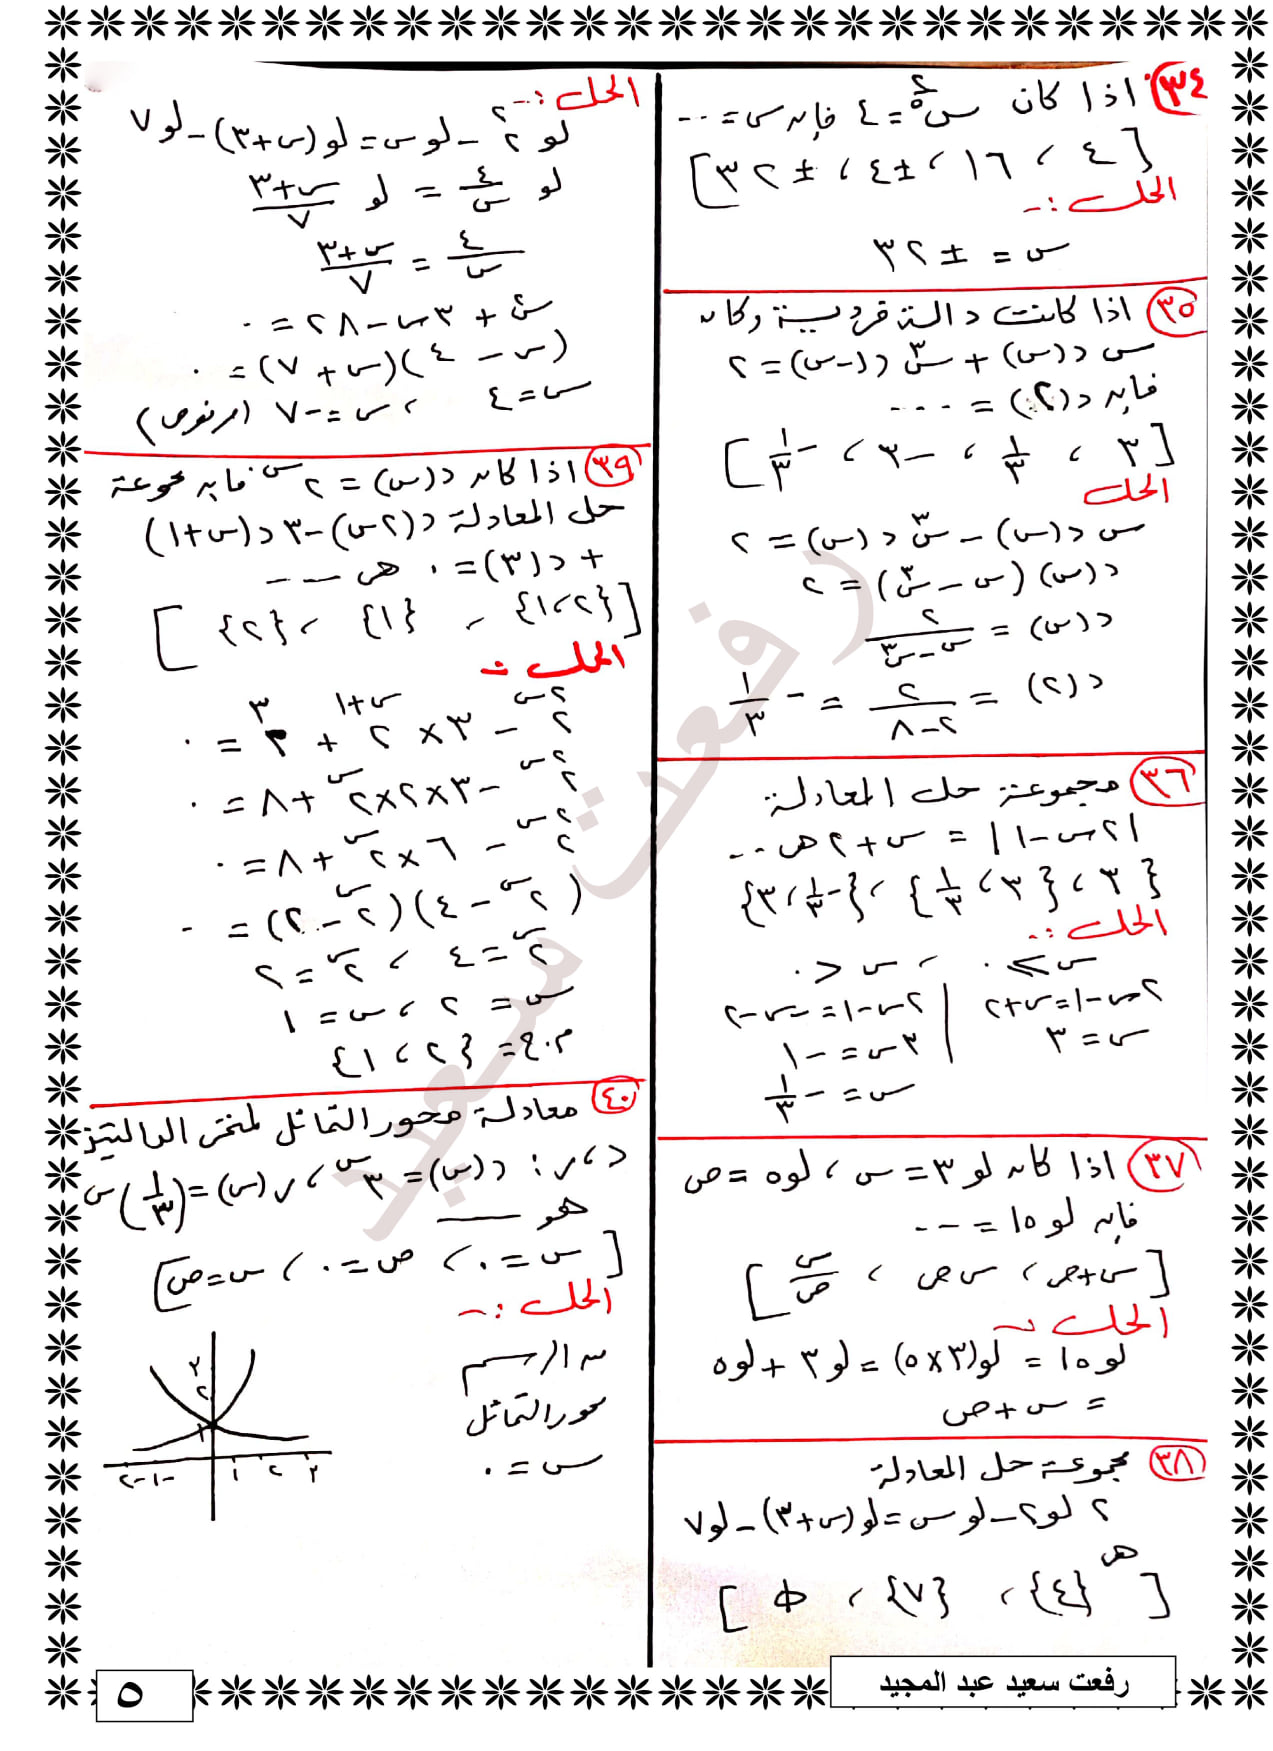 ٣٤ اذا كان س^(٢/٥) = ٤ فإن س = ...
[٤ ، ١٦ ، ±٤ ، ±٣٢]
الحل :-
س = ± ٣٢
٣٥ اذا كانت د دالة فردية وكان
س د(س) + س^٣ د(-س) = ٢
فإن د(٢) = ...
[٣ ، ١/٣ ، -٣ ، -١/٣]
الحل
س د(س) - س^٣ د(س) = ٢
د(س) (س - س^٣) = ٢
د(س) = ٢/(س - س^٣)
د(٢) = ٢/(٢-٨) = -١/٣
٣٦ مجموعة حل المعادلة
|٢س-١| = س+٢ هى ..
{٣} ، {٣ ، ١/٣} ، {-١/٣ ، ٣}
الحل :-
س ≥ ٠ ، س < ٠
٢س-١=س+٢ | ٢س-١=-س-٢
س = ٣ | ٣س = -١
س = -١/٣
٣٧ اذا كان لو ٣ = س ، لو ٥ = ص
فإن لو ١٥ = ...
[س+ص ، س ص ، س/ص]
الحل
لو ١٥ = لو(٣×٥) = لو ٣ + لو ٥
= س + ص
٣٨ مجموعة حل المعادلة
٢ لو ٢ - لو س = لو(س+٣) - لو ٧
هى
[{٤} ، {٧} ، Φ]
الحل :-
لو ٢^٢ - لو س = لو (س+٣) - لو ٧
لو ٤/س = لو (س+٣)/٧
٤/س = (س+٣)/٧
س^٢ + ٣س - ٢٨ = ٠
(س - ٤)(س + ٧) = ٠
س = ٤ ، س = -٧ (مرفوض)
٣٩ اذا كان د(س) = ٢^س فإن مجموعة
حل المعادلة د(٢س) - ٣ د(س+١)
+ د(٣) = ٠ هى ---
[{١،٢} ، {١} ، {٢}]
الحل :-
٢^(٢س) - ٣ × ٢^(س+١) + ٢^٣ = ٠
٢^(٢س) - ٣×٢×٢^س + ٨ = ٠
٢^(٢س) - ٦×٢^س + ٨ = ٠
(٢^س - ٤)(٢^س - ٢) = ٠
٢^س = ٤ ، ٢^س = ٢
س = ٢ ، س = ١
م.ح = {٢ ، ١}
٤٠ معادلة محور التماثل لمنحنى الدالتين
د ، ر : د(س) = ٣^س ، ر(س) = (١/٣)^س
هو ——
[س = ٠ ، ص = ٠ ، س = ص]
الحل :-
من الرسم
محور التماثل
س = ٠
٣
٢
١
-٢ -١ ١ ٢ ٣
رفعت سعيد
رفعت سعيد عبد المجيد
٥